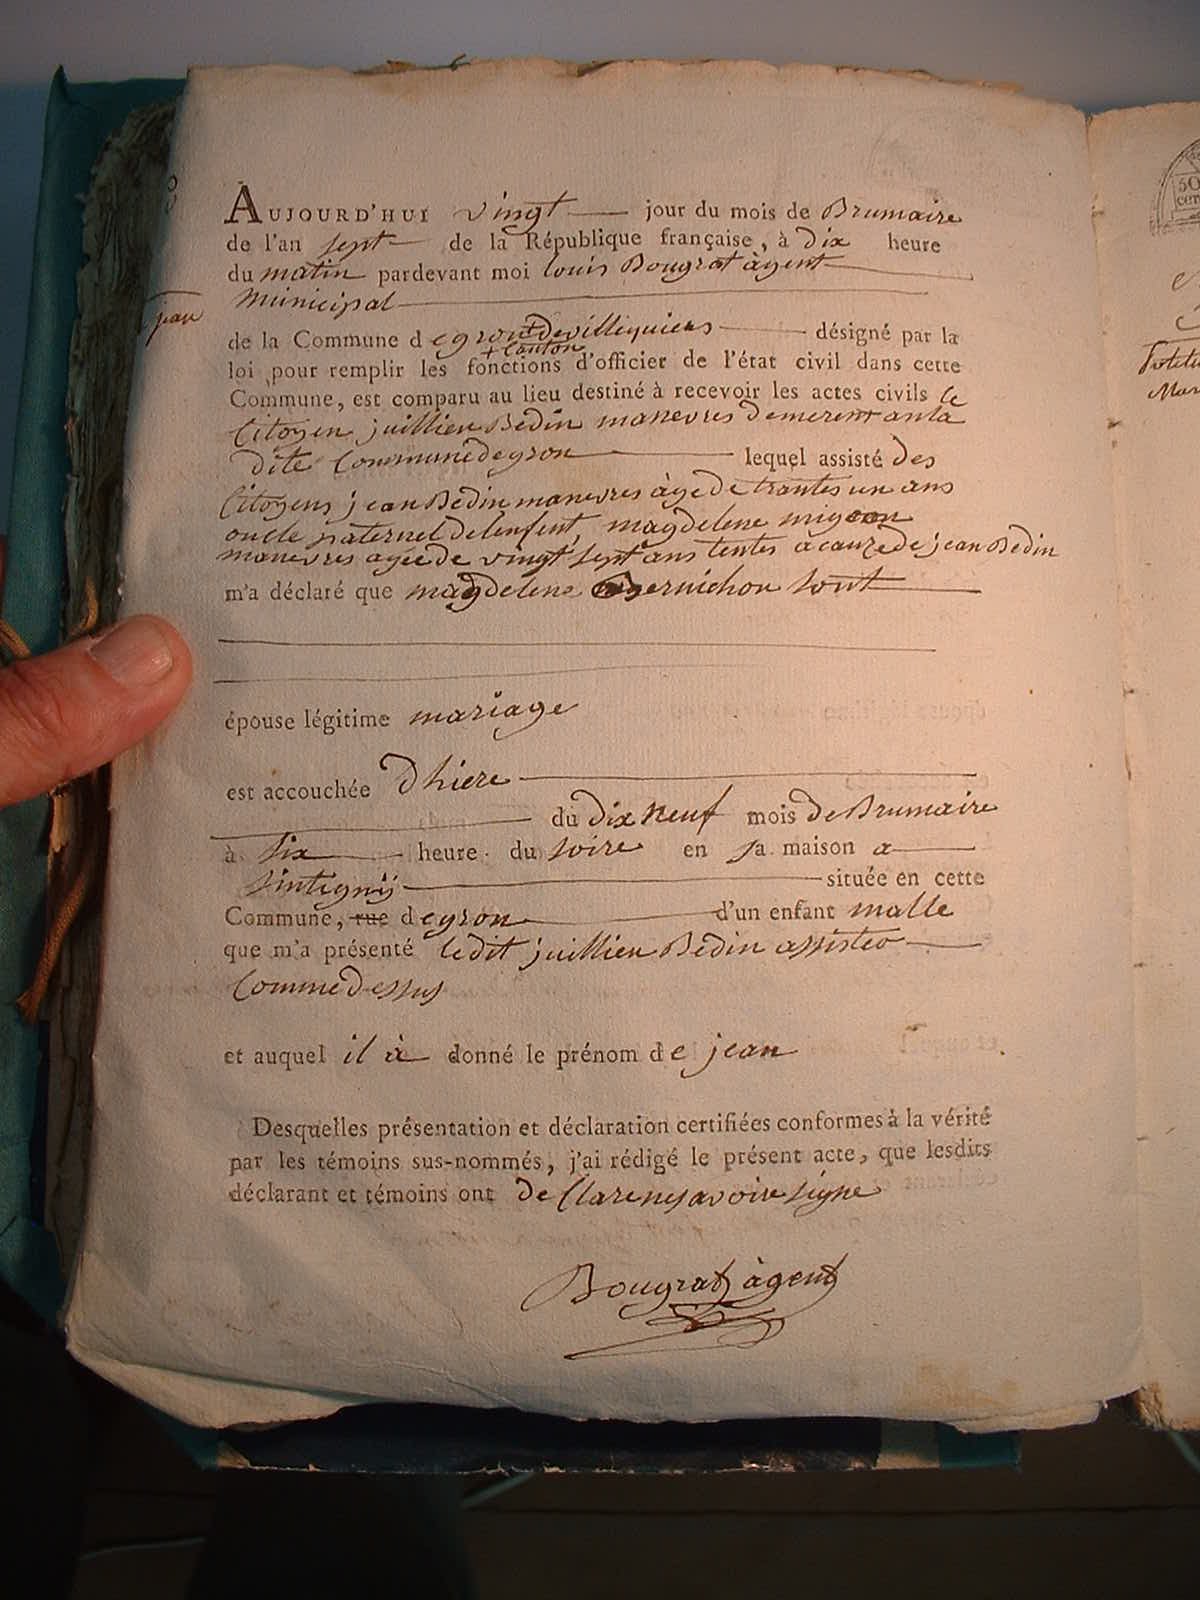 AUJOURD'HUI vingt jour du mois de Brumaire
de l'an sept de la République française, à dix heure
du matin pardevant moi louis Bougrat àgent
Municipal
jean
de la Commune d egron + devillequiers désigné par la
+ Canton
loi pour remplir les fonctions d'officier de l'état civil dans cette
Commune, est comparu au lieu destiné à recevoir les actes civils le
Citoyen juillien Bedin manevres demerent an la
dite Commune degron lequel assisté des
Citoyens jean Bedin manevres àge de trantes un ans
oncle paternel delenfent, magdelene migeon
manevres agée de vingt sept ans tentes a cauze de jean Bedin
m'a déclaré que magdelene vernichon sont
épouse légitime mariage
est accouchée dhiere
du dix neuf mois de Brumaire
à six heure du soire en sa maison a
Sintignÿ située en cette
Commune, rue d egron d'un enfant malle
que m'a présenté ledit juillien Bedin assisteo
Comme dessus
et auquel il à donné le prénom de jean
Desquelles présentation et déclaration certifiées conformes à la vérité
par les témoins sus-nommés, j'ai rédigé le présent acte, que lesdits
déclarant et témoins ont de Clare ne savoire signe
Bougrat àgent
50
cen